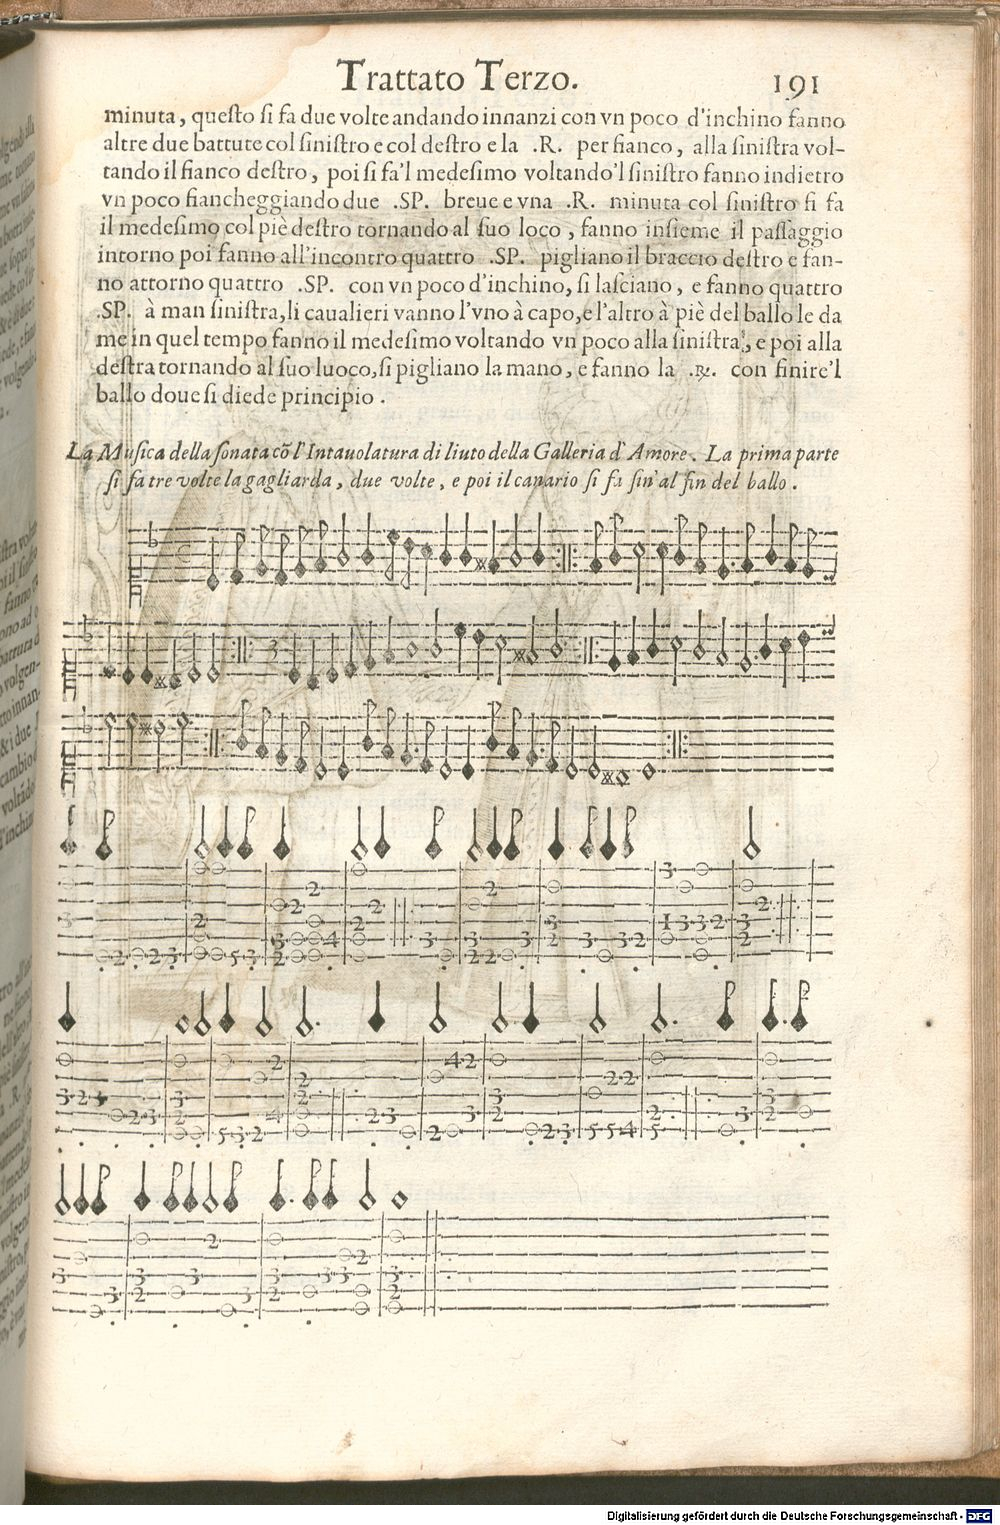 Trattato Terzo. 191
minuta, queſto ſi fa due volte andando innanzi con vn poco d'inchino fanno
altre due battute col ſiniſtro e col deſtro e la .R. per fianco, alla ſiniſtra vol-
tando il fianco deſtro, poi ſi fa'l medeſimo voltando'l ſiniſtro fanno indietro
vn poco fiancheggiando due .SP. breue e vna .R. minuta col ſiniſtro ſi fa
il medeſimo col piè deſtro tornando al ſuo loco, fanno inſieme il paſſaggio
intorno poi fanno all'incontro quattro .SP. pigliano il braccio deſtro e fan-
no attorno quattro .SP. con vn poco d'inchino, ſi laſciano, e fanno quattro
.SP. à man ſiniſtra, li caualieri vanno l'vno à capo, e l'altro à piè del ballo le da
me in quel tempo fanno il medeſimo voltando vn poco alla ſiniſtra, e poi alla
deſtra tornando al ſuo luoco, ſi pigliano la mano, e fanno la .℞. con finire'l
ballo doue ſi diede principio.
La Muſica della ſonata cõ l'Intauolatura di liuto della Galleria d'Amore. La prima parte
ſi fa tre volte la gagliarda, due volte, e poi il canario ſi fa ſin'al fin del ballo.
Digitalisierung gefördert durch die Deutsche Forschungsgemeinschaft - DFG